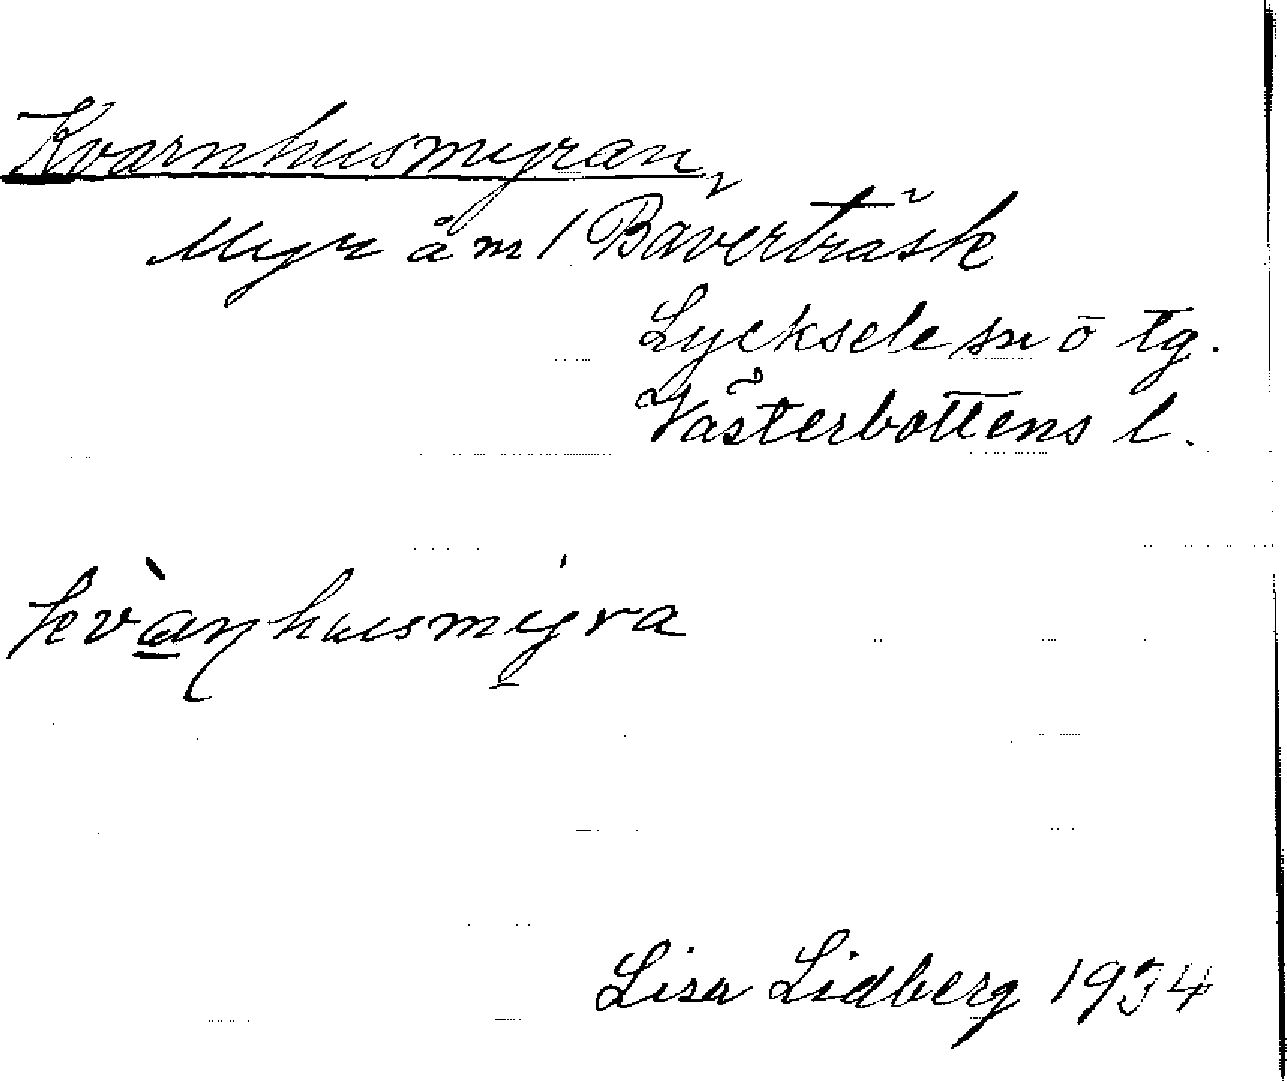 Kvarnhusmyran,
Myr å m / Bäverträsk
Lycksele sn o tg.
Västerbottens l.
kvànhusmyra
Lisa Lidberg 1934